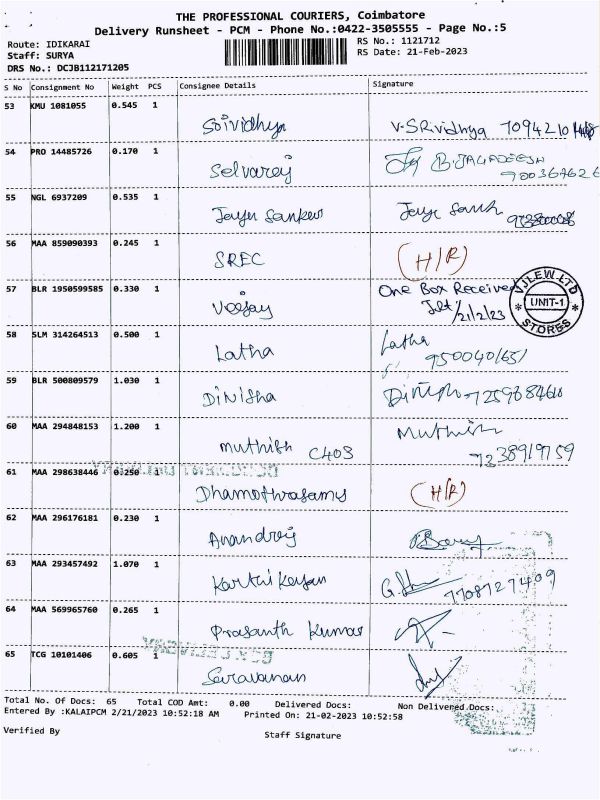 THE PROFESSIONAL COURIERS, Coimbatore
Delivery Runsheet - PCM - Phone No.:0422-3505555 - Page No.:5
Route: IDIKARAI
RS No.: 1121712
Staff: SURYA
RS Date: 21-Feb-2023
DRS No.: DCJB112171205
S No Consignment No Weight PCS Consignee Details Signature
53 KMU 1081055 0.545 1
Srividhya V-SRividhya
54 PRO 14485726 0.170 1
Selvaraj B.JAGADEESH
55 NGL 6937209 0.535 1
56 MAA 859090393 0.245 1
SREC (H/R)
57 BLR 1950599585 0.330 1
Veejay One Box Received
21/2/23
VJLEW-LTD
UNIT-1
STORES
58 SLM 314264513 0.500 1
Latha Latha
9500401651
59 BLR 500809579 1.030 1
Dinisha
60 MAA 294848153 1.200 1
Muthish C403 Muthish
7238919759
61 MAA 298638446 0.250 1
(H/R)
62 MAA 296176181 0.230 1
Anandraj
63 MAA 293457492 1.070 1
Karthikeyan
7708727409
64 MAA 569965760 0.265 1
Prasanth Kumar
65 TCG 10101406 0.605 1
Saravanan
Total No. Of Docs: 65 Total COD Amt: 0.00 Delivered Docs: Non Delivered Docs:
Entered By :KALAIPCM 2/21/2023 10:52:18 AM Printed On: 21-02-2023 10:52:58
Verified By
Staff Signature